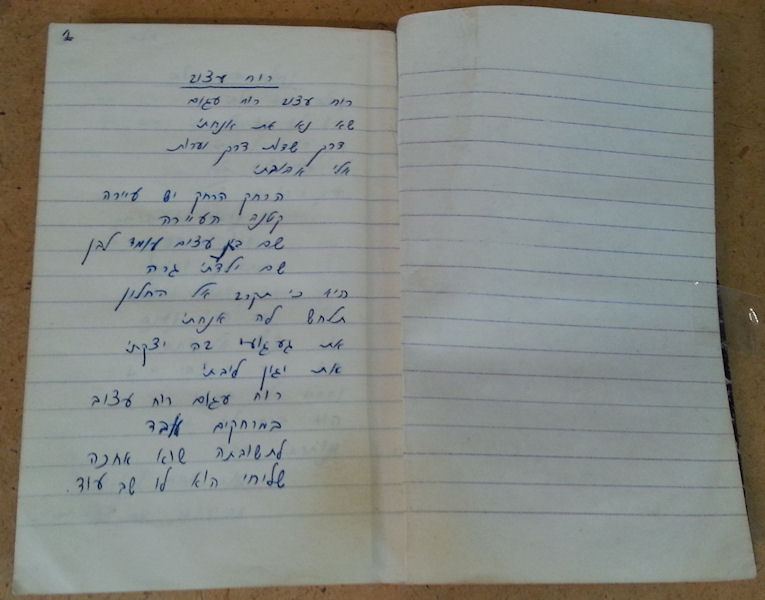 1
רוח עצוב
רוח עצוב רוח עגום
שא נא את אנחתי
דרך שדות דרך יערות
אלי אהובתי
הרחק הרחק יש עיירה
קטנה העיירה
שם בין עצים עומד לבן
שם ילדתי גרה
היא כי תקרב אל החלון
תלחש לה אנחתי
את געגועי בה יצקתי
את יגון ליבתי
רוח עגום רוח עצוב
במרחקים אובד
לתשובתה שוא אחכה
שליחי הוא לו שב עוד.